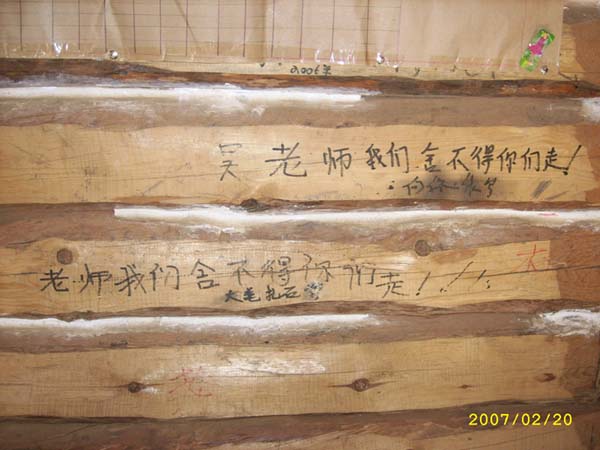 2006年
吴老师我们舍不得你们走!
老师我们舍不得你们走!!!
大
2007/02/20